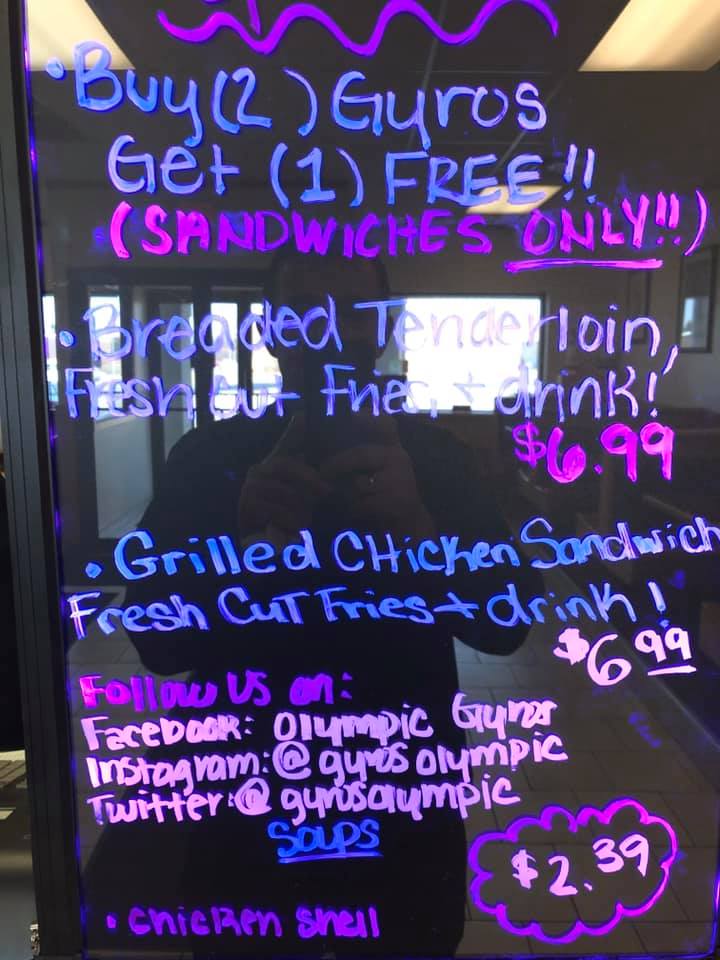 • Buy (2) Gyros
Get (1) FREE!!
(SANDWICHES ONLY!!)
• Breaded Tenderloin,
Fresh Cut Fries, + drink!
$6.99
• Grilled CHicken Sandwich
Fresh CuT Fries + drink!
$6 99
Follow US on:
Facebook: Olympic Gyros
Instagram: @ gyros olympic
Twitter: @ gyrosolympic
SOUPS
$2.39
• chicken shell